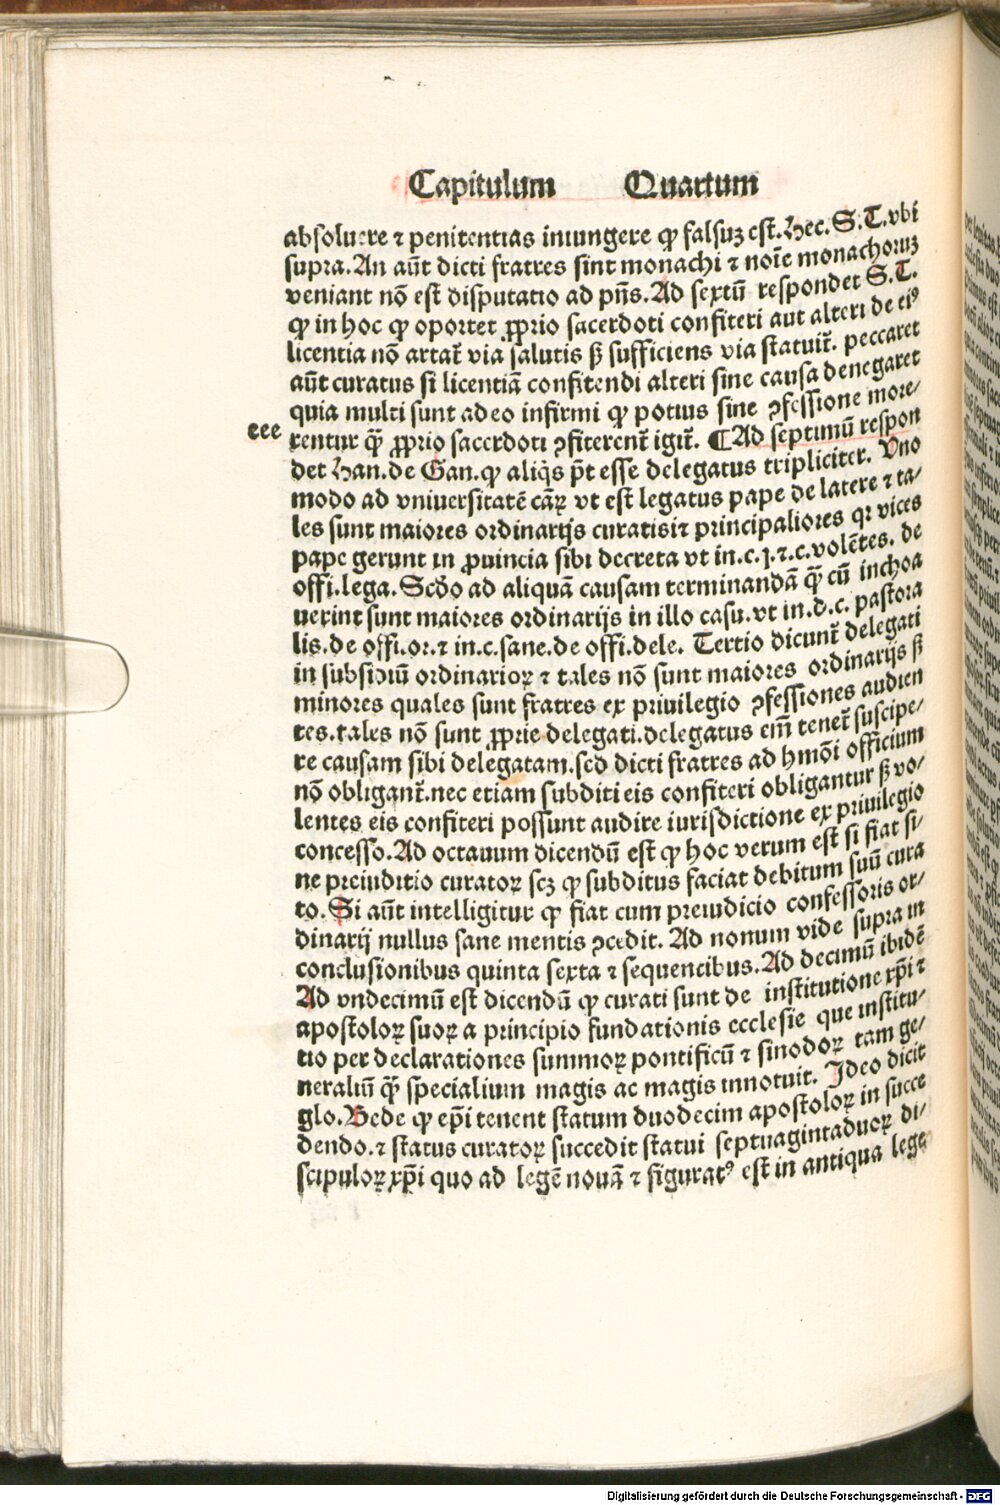 Capitulum Quartum
absoluere ⁊ penitentias iniungere ꝙ falsuꝫ est. Hec. S. T. vbi
supra. An aūt dicti fratres sint monachi ⁊ noīe monachoruꝫ
veniant nō est disputatio ad pn̄s. Ad sextū respondet S. T.
ꝙ in hoc ꝙ oportet ꝓprio sacerdoti confiteri aut alteri de eiꝰ
licentia nō artat᷑ via salutis sꝫ sufficiens via statuit᷑. peccaret
aūt curatus si licentiā confitendi alteri sine causa denegaret
quia multi sunt adeo infirmi ꝙ potius sine ꝯfessione more/
eee
rentur qꝫ̄ ꝓprio sacerdoti ꝯfiterent᷑ igit᷑. ¶ Ad septimū respon
det Han. de Gan. ꝙ aliq̇s pōt esse delegatus tripliciter. Uno
modo ad vniuersitatē caꝝ vt est legatus pape de latere ⁊ ta/
les sunt maiores ordinarijs curatis ⁊ principaliores qꝛ vices
pape gerunt in ꝓuincia sibi decreta vt in. c. j. ⁊. c. volētes. de
offi. lega. Scd̄o ad aliquā causam terminandā qꝫ̄ cū inchoa
uerint sunt maiores ordinarijs in illo casu. vt in. d. c. pastora
lis. de offi. or. ⁊ in. c. sane. de offi. dele. Tertio dicunt᷑ delegati
in subsidiū ordinarioꝝ ⁊ tales nō sunt maiores ordinarijs sꝫ
minores quales sunt fratres ex priuilegio ꝯfessiones audien
tes. tales nō sunt ꝓprie delegati. delegatus em̄ tenet᷑ suscipe/
re causam sibi delegatam. sed dicti fratres ad hmōi officium
nō obligant᷑. nec etiam subditi eis confiteri obligantur sꝫ vo/
lentes eis confiteri possunt audire iurisdictione ex priuilegio
concesso. Ad octauum dicendū est ꝙ hoc verum est si fiat si/
ne preiuditio curatoꝝ scꝫ ꝙ subditus faciat debitum suū cura
to. Si aūt intelligitur ꝙ fiat cum preiudicio confessoris or/
dinarij nullus sane mentis ꝯcedit. Ad nonum vide supra in
conclusionibus quinta sexta ⁊ sequentibus. Ad decimū ibidē
Ad vndecimū est dicendū ꝙ curati sunt de institutione xp̄i ⁊
apostoloꝝ suoꝝ a principio fundationis ecclesie que institu/
tio per declarationes summoꝝ pontificū ⁊ sinodoꝝ tam ge/
neraliū qꝫ̄ specialium magis ac magis innotuit. Ideo dicit
glo. Bede ꝙ ep̄i tenent statum duodecim apostoloꝝ in succe
dendo. ⁊ status curatoꝝ succedit statui septuagintaduoꝝ di/
scipuloꝝ xp̄i quo ad legē nouā ⁊ figuratꝰ est in antiqua lege
Digitalisierung gefördert durch die Deutsche Forschungsgemeinschaft - DFG